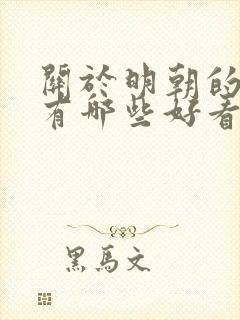 關於明朝的
有哪些好看
黑馬文